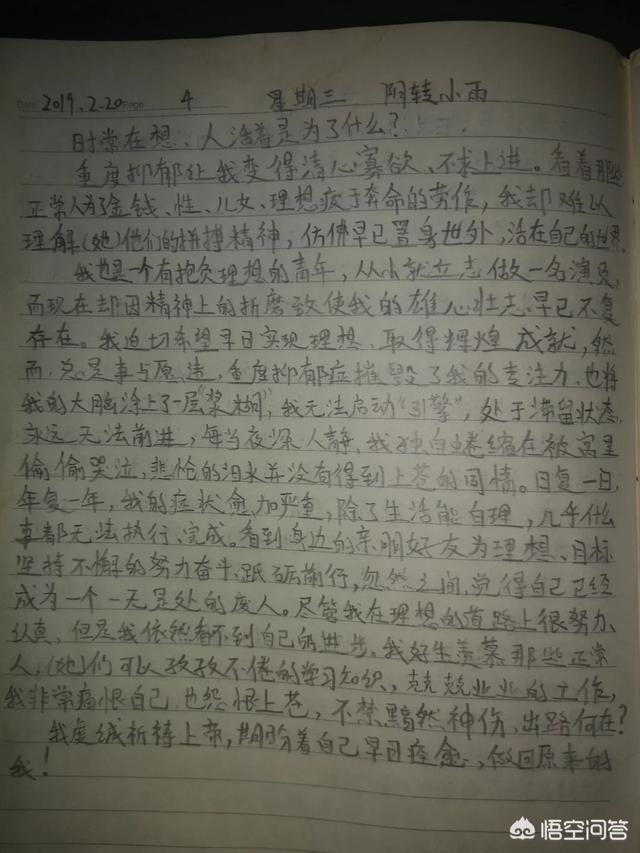 Date 2019.2.20 Page 4 星期三 阴转小雨
时常在想、人活着是为了什么?
重度抑郁让我变得清心寡欲、不求上进。看着那些
正常人为了金钱、性、儿女、理想疲于奔命的劳作,我却难以
理解(她)他们的拼搏精神,仿佛早已置身世外,活在自己的世界。
我也是一个有抱负理想的青年,从小就立志做一名演员,
而现在却因精神上的折磨致使我的雄心壮志、早已不复
存在。我迫切希望早日实现理想、取得辉煌成就,然
而,总是事与愿违,重度抑郁症摧毁了我的专注力,也将
我的大脑涂上了一层"浆糊",我无法启动"引擎",处于滞留状态,
永远无法前进,每当夜深人静,我独自蜷缩在被窝里
偷偷哭泣,悲怆的泪水并没有得到上苍的同情。日复一日,
年复一年,我的症状愈加严重,除了生活能自理,几乎什么
事都无法执行、完成。看到身边的亲朋好友为理想、目标
坚持不懈的努力奋斗、砥砺前行,忽然之间,觉得自己已经
成为一个一无是处的废人。尽管我在理想的道路上很努力、
认真,但是我依然看不到自己的进步。我好生羡慕那些正常
人,(她)们可以孜孜不倦的学习知识、兢兢业业的工作,
我非常痛恨自己,也怨恨上苍,不禁黯然神伤,出路何在?
我虔诚祈祷上帝,期盼着自己早日痊愈、做回原来的
我!
悟空问答